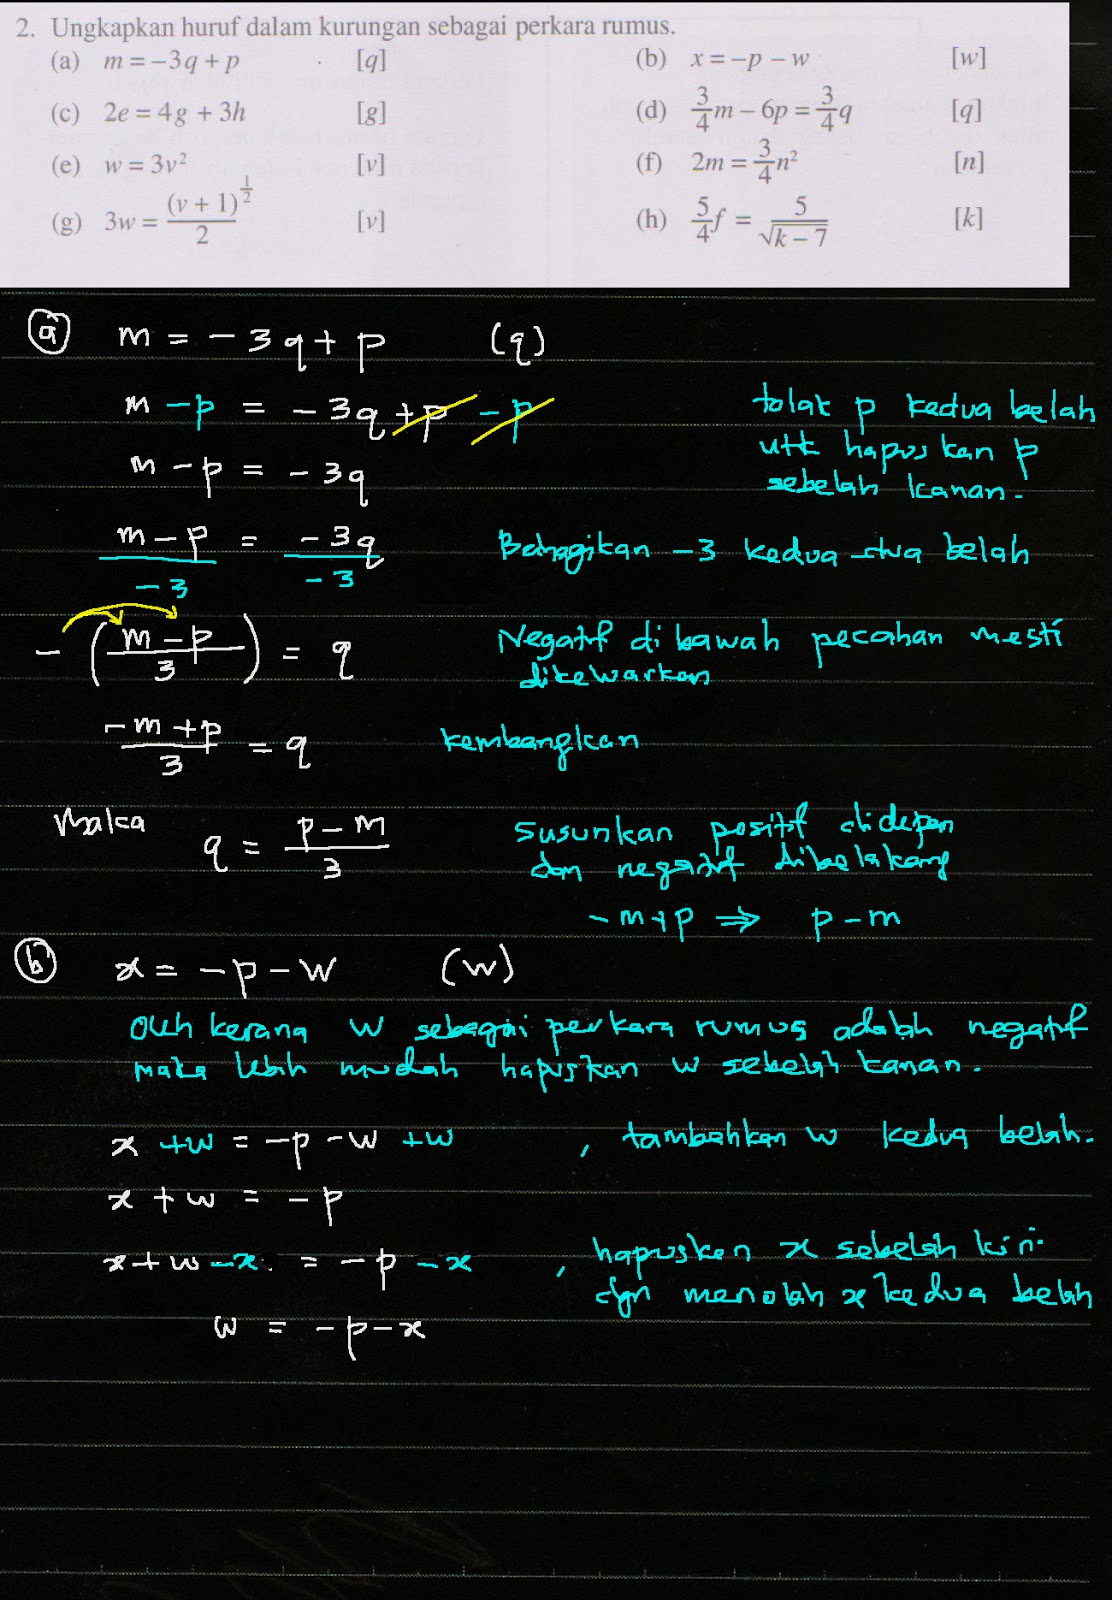 2. Ungkapkan huruf dalam kurungan sebagai perkara rumus.
(a) m = −3q + p [q] (b) x = −p − w [w]
(c) 2e = 4g + 3h [g] (d) 3/4 m − 6p = 3/4 q [q]
(e) w = 3v² [v] (f) 2m = 3/4 n² [n]
(g) 3w = (v + 1)^(1/2) / 2 [v] (h) 5/4 f = 5/√(k − 7) [k]
(a) m = −3q + p (q)
m − p = −3q + p − p tolak p kedua belah
utk hapuskan p
m − p = −3q
sebelah kanan.
(m − p)/−3 = −3q/−3 Bahagikan −3 kedua-dua belah
−((m − p)/3) = q Negatif dibawah pecahan mesti
dikewarkan
(−m + p)/3 = q kembangkan
Maka q = (p − m)/3 susunkan positif didepan
dan negatif dibelakang
−m + p ⇒ p − m
(b) x = −p − w (w)
Oleh kerana w sebagai perkara rumus adalah negatif
maka lebih mudah hapuskan w sebelah kanan.
x + w = −p − w + w , tambahkan w kedua belah.
x + w = −p
x + w − x = −p − x , hapuskan x sebelah kiri
dgn menolak x kedua belah
w = −p − x